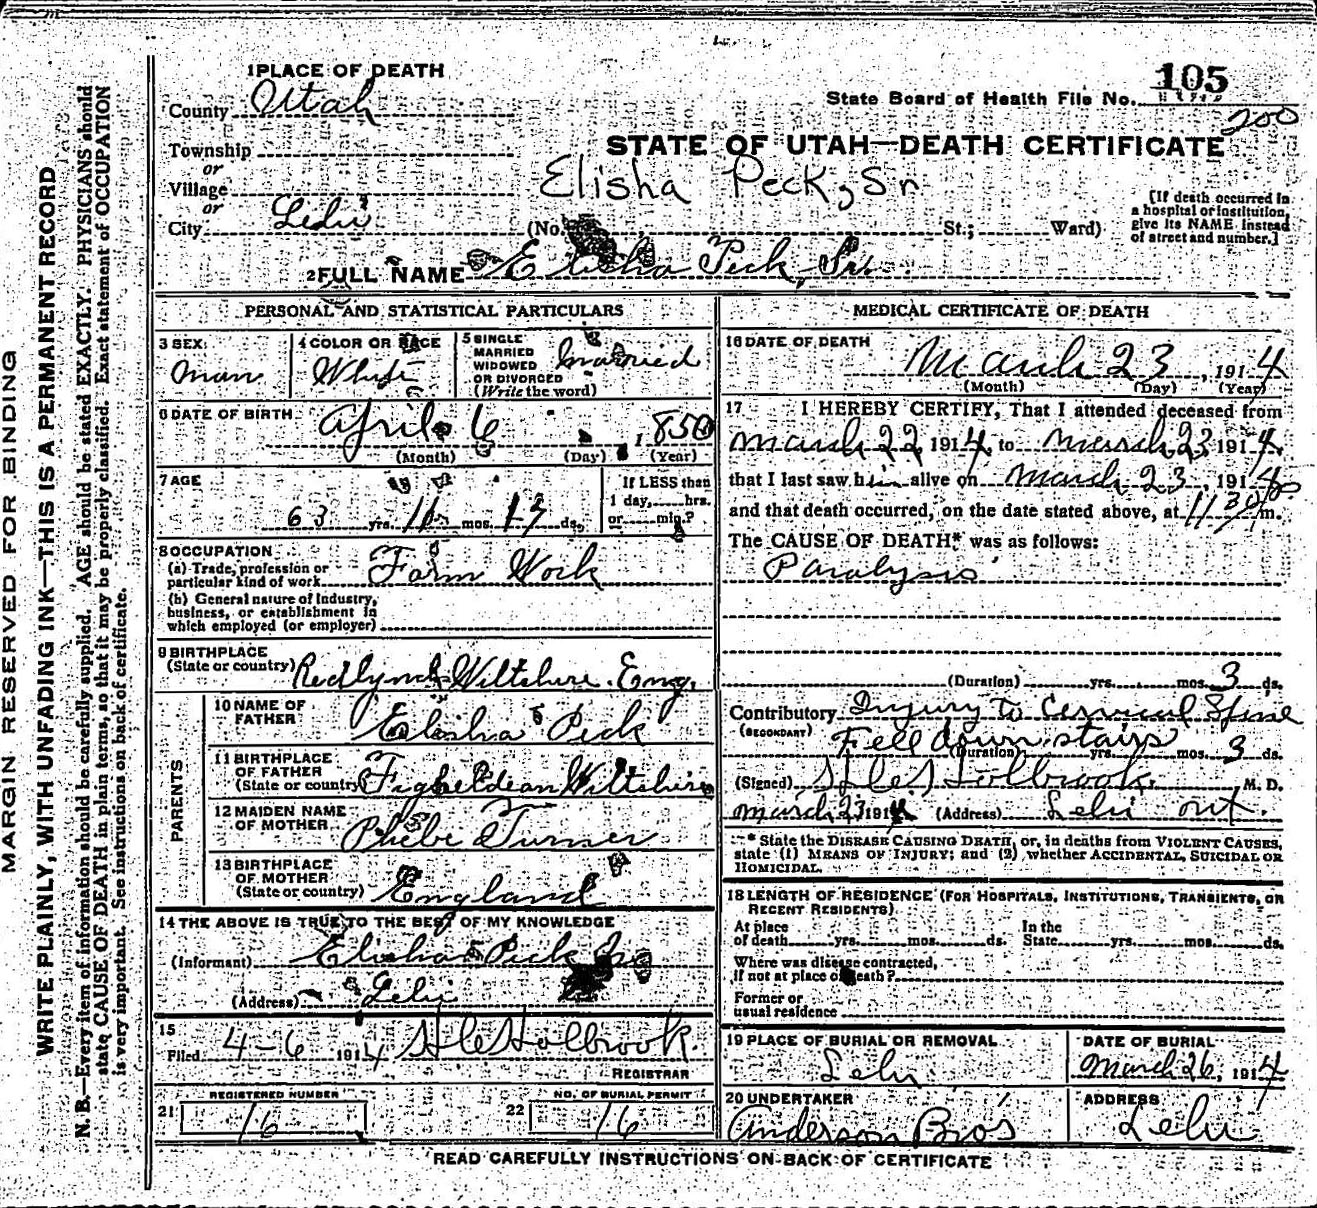 MARGIN RESERVED FOR BINDING
WRITE PLAINLY, WITH UNFADING INK—THIS IS A PERMANENT RECORD
N. B.—Every item of information should be carefully supplied. AGE should be stated EXACTLY. PHYSICIANS should
state CAUSE OF DEATH in plain terms, so that it may be properly classified. Exact statement of OCCUPATION
is very important. See instructions on back of certificate.
1 PLACE OF DEATH
County Utah
Township
or
Village
or
City Lehi
105
State Board of Health File No.
200
STATE OF UTAH—DEATH CERTIFICATE
Elisha Peck, Sr
(No. St.; Ward)
[If death occurred in
a hospital or institution,
give its NAME instead
of street and number.]
2 FULL NAME Elisha Peck, Sr.
PERSONAL AND STATISTICAL PARTICULARS
3 SEX
man
4 COLOR OR RACE
White
5 SINGLE
MARRIED
WIDOWED
OR DIVORCED
(Write the word)
Married
6 DATE OF BIRTH
April 6 1850
(Month) (Day) (Year)
7 AGE
63 yrs. 11 mos. 17 ds.
If LESS than
1 day, hrs.
or min.?
8 OCCUPATION
(a) Trade, profession or
particular kind of work Farm Work
(b) General nature of Industry,
business, or establishment in
which employed (or employer)
9 BIRTHPLACE
(State or country) Redlynch Wiltshire. Eng.
PARENTS
10 NAME OF
FATHER
Elisha Peck
11 BIRTHPLACE
OF FATHER
(State or country) Figheldean Wiltshire
12 MAIDEN NAME
OF MOTHER
Phebe Turner
13 BIRTHPLACE
OF MOTHER
(State or country) England
14 THE ABOVE IS TRUE TO THE BEST OF MY KNOWLEDGE
(Informant) Elisha Peck Jr
(Address) Lehi
15
Filed 4-6 1914 H C Holbrook.
REGISTRAR
REGISTERED NUMBER
21 16
NO. OF BURIAL PERMIT
22 16
MEDICAL CERTIFICATE OF DEATH
16 DATE OF DEATH
March 23, 1914
(Month) (Day) (Year)
17 I HEREBY CERTIFY, That I attended deceased from
March 22 1914, to March 23 1914,
that I last saw him alive on March 23, 1914
and that death occurred, on the date stated above, at 11 30 m.
The CAUSE OF DEATH* was as follows:
Paralysis
(Duration) yrs. mos. 3 ds.
Contributory Injury to Cervical Spine
(SECONDARY)
Fell down stairs
(Duration) yrs. mos. 3 ds.
(Signed) H C Holbrook. M. D.
March 23 1914 (Address) Lehi Ut.
* State the DISEASE CAUSING DEATH, or, in deaths from VIOLENT CAUSES,
state (1) MEANS OF INJURY; and (2) whether ACCIDENTAL, SUICIDAL OR
HOMICIDAL.
18 LENGTH OF RESIDENCE (FOR HOSPITALS, INSTITUTIONS, TRANSIENTS, OR
RECENT RESIDENTS)
At place
of death yrs. mos. ds.
In the
State yrs. mos. ds.
Where was disease contracted,
if not at place of death?
Former or
usual residence
19 PLACE OF BURIAL OR REMOVAL
Lehi
DATE OF BURIAL
March 26, 1914
20 UNDERTAKER
Anderson Bros
ADDRESS
Lehi
READ CAREFULLY INSTRUCTIONS ON BACK OF CERTIFICATE